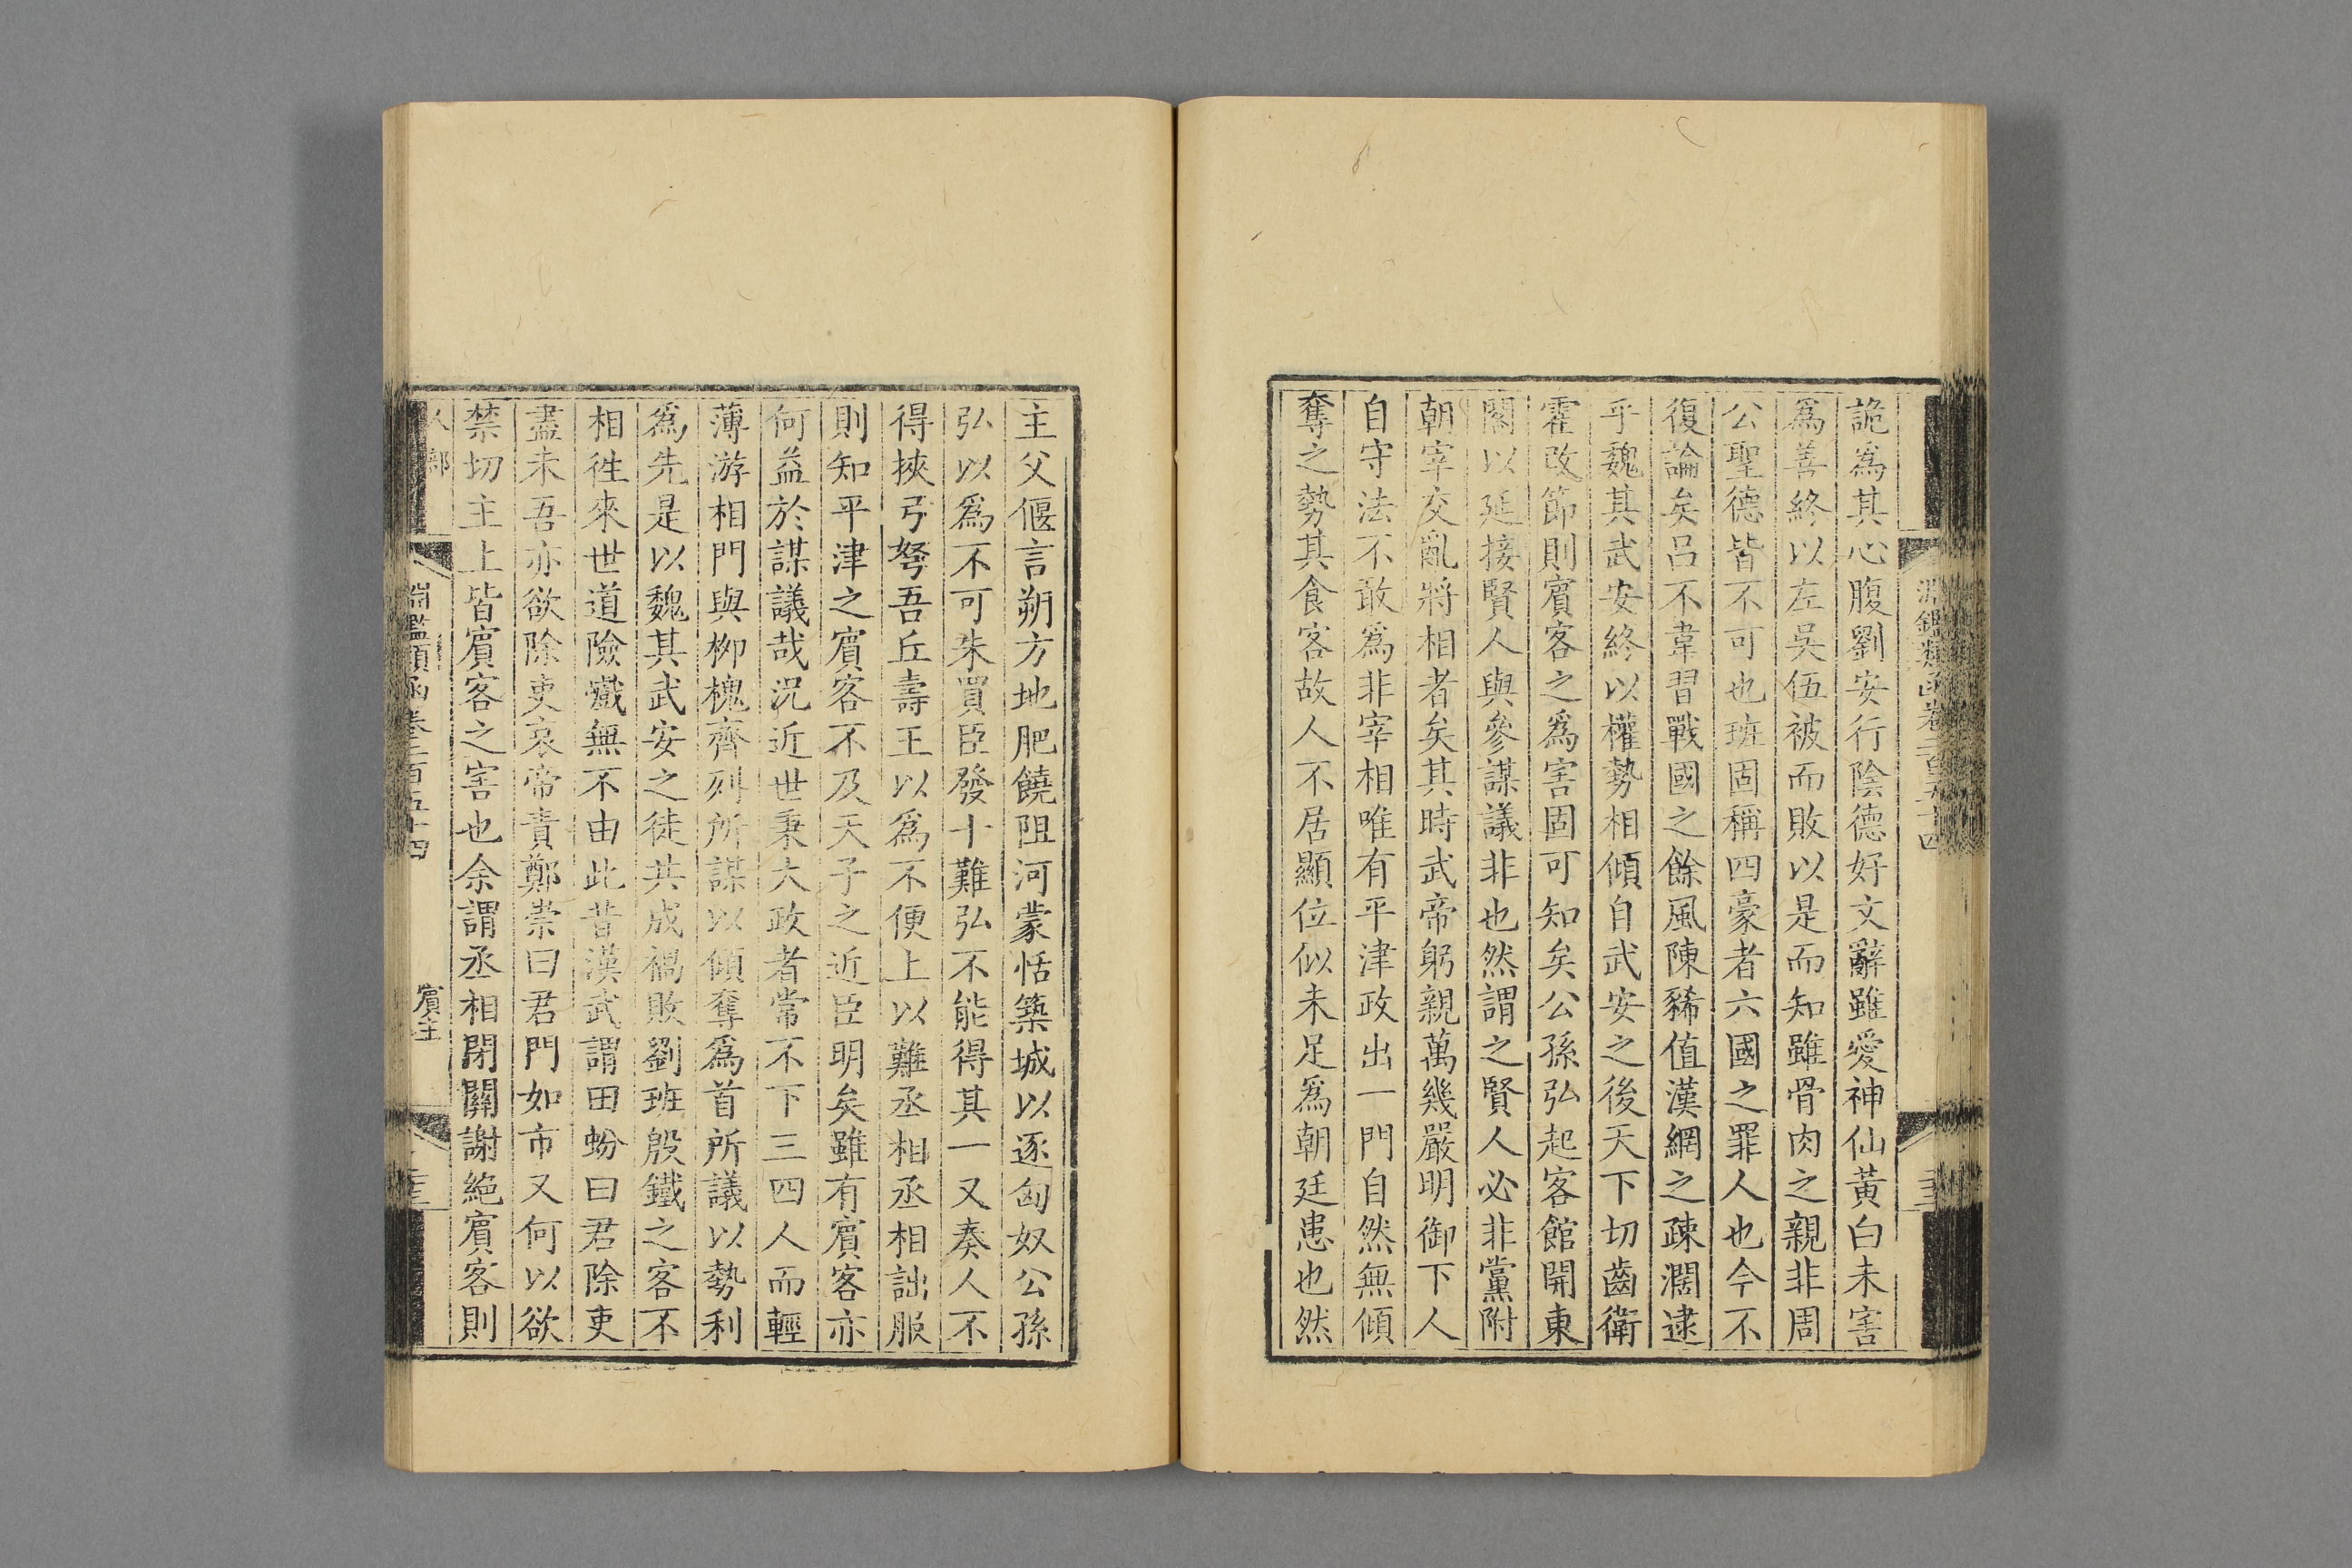 淵鑑類函卷二百五十四
詭為其心腹劉安行陰德好文辭雖愛神仙黃白未害
爲善終以左吳伍被而敗以是而知雖骨肉之親非周
公聖德皆不可也班固稱四豪者六國之罪人也今不
復論矣呂不韋習戰國之餘風陳豨值漢網之疎濶逮
乎魏其武安終以權勢相傾自武安之後天下切齒衛
霍改節則賓客之爲害固可知矣公孫弘起客館開東
閣以延接賢人與參謀議非也然謂之賢人必非黨附
朝宰交亂將相者矣其時武帝躬親萬幾嚴明御下人
自守法不敢爲非宰相唯有平津政出一門自然無傾
奪之勢其食客故人不居顯位似未足爲朝廷患也然
主父偃言朔方地肥饒阻河蒙恬築城以逐匈奴公孫
弘以爲不可朱買臣發十難弘不能得其一又奏人不
得挾弓弩吾丘壽王以爲不便上以難丞相丞相詘服
則知平津之賓客不及天子之近臣明矣雖有賓客亦
何益於謀議哉況近世秉大政者常不下三四人而輕
薄游相門與柳槐齊列所謀以傾奪爲首所議以勢利
爲先是以魏其武安之徒共成禍敗劉班殷鐵之客不
相徃來世道險巇無不由此昔漢武謂田蚡曰君除吏
盡未吾亦欲除吏哀帝責鄭崇曰君門如市又何以欲
禁切主上皆賓客之害也余謂丞相閉關謝絶賓客則
人部
淵鑑類函卷二百五十四
賓主